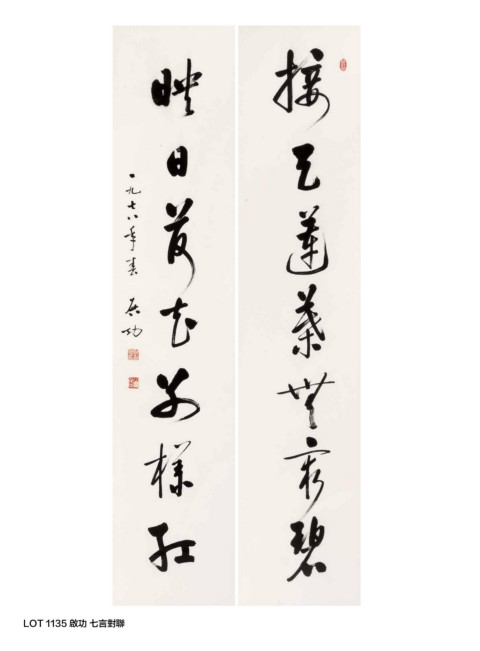 接天蓮葉無窮碧
映日荷花別樣紅
一九七八年春 启功
LOT 1135 啟功 七言對聯